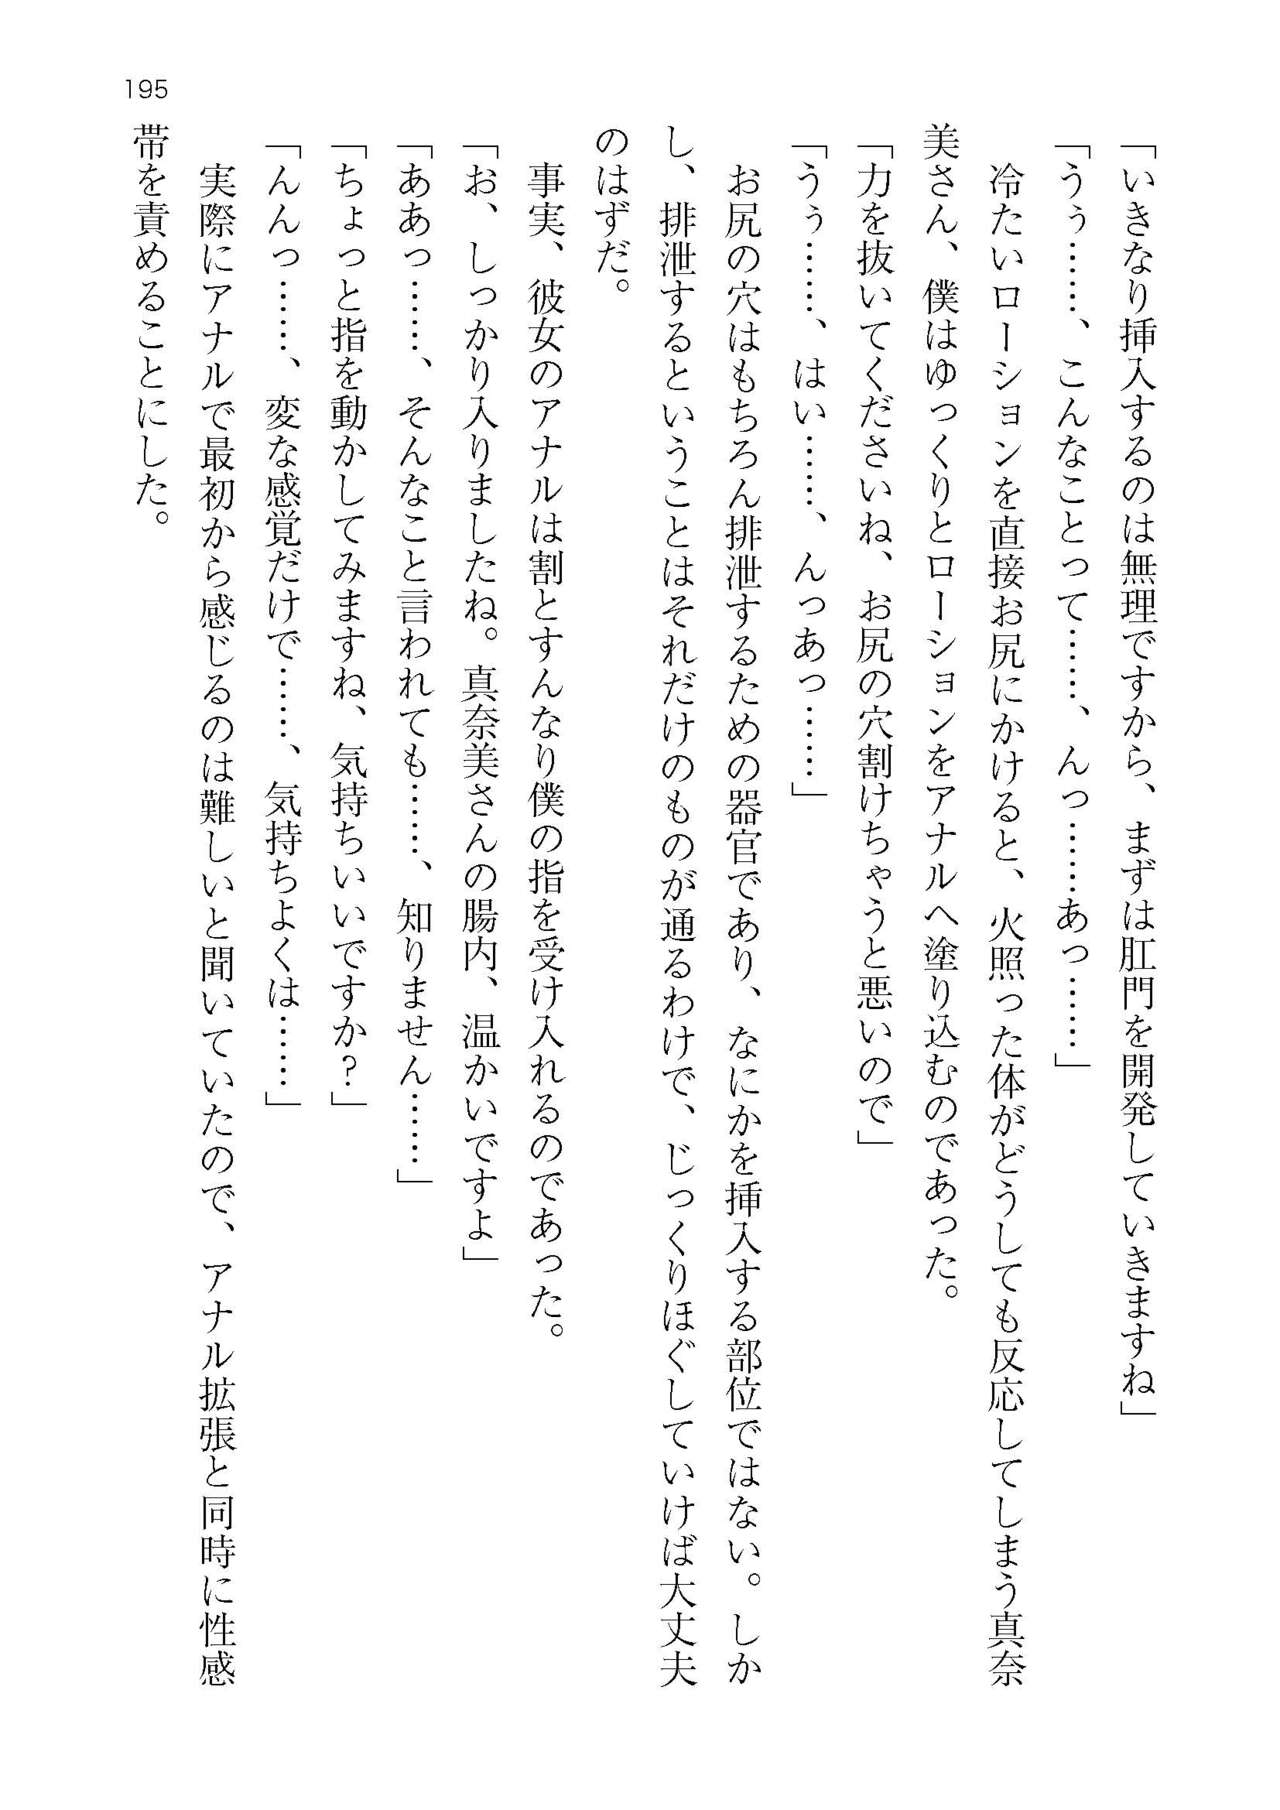 195
「いきなり挿入するのは無理ですから、まずは肛門を開発していきますね」
「うぅ……、こんなことって……、んっ……あっ……」
冷たいローションを直接お尻にかけると、火照った体がどうしても反応してしまう真奈
美さん、僕はゆっくりとローションをアナルへ塗り込むのであった。
「力を抜いてくださいね、お尻の穴割けちゃうと悪いので」
「うぅ……、はい……、んっあっ……」
お尻の穴はもちろん排泄するための器官であり、なにかを挿入する部位ではない。しか
し、排泄するということはそれだけのものが通るわけで、じっくりほぐしていけば大丈夫
のはずだ。
事実、彼女のアナルは割とすんなり僕の指を受け入れるのであった。
「お、しっかり入りましたね。真奈美さんの腸内、温かいですよ」
「ああっ……、そんなこと言われても……、知りません……」
「ちょっと指を動かしてみますね、気持ちいいですか？」
「んんっ……、変な感覚だけで……、気持ちよくは……」
実際にアナルで最初から感じるのは難しいと聞いていたので、アナル拡張と同時に性感
帯を責めることにした。